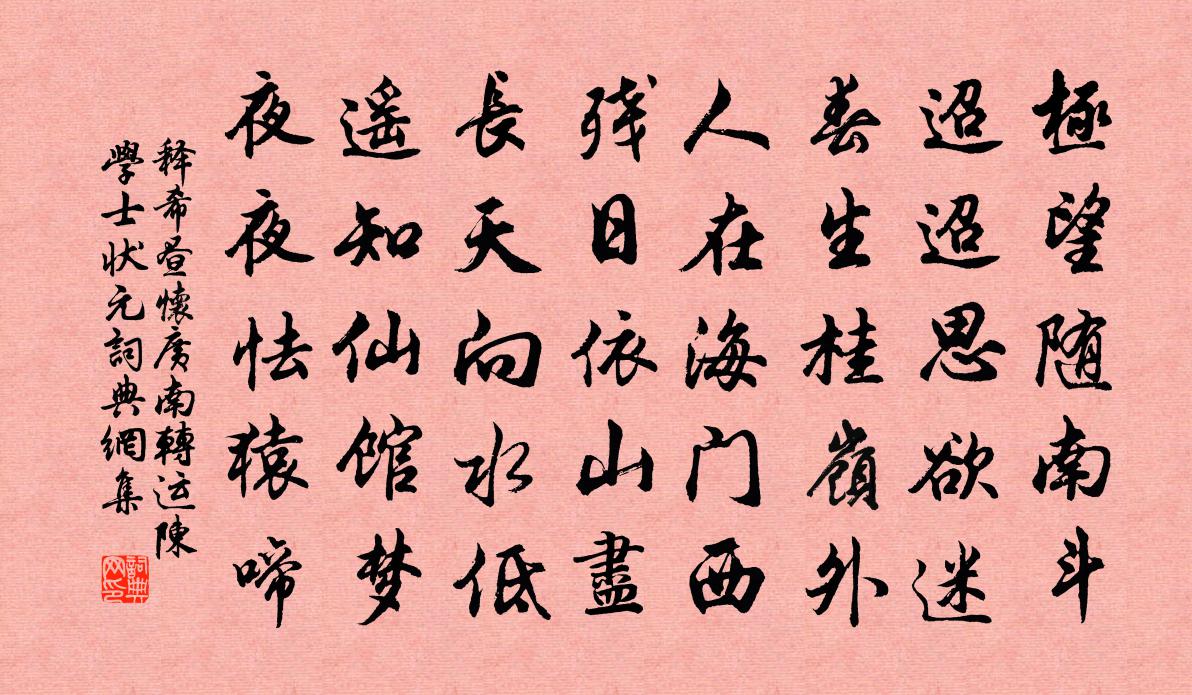 極望随南斗
迢迢思欲迷
春生桂嶺外
人在海门西
残日依山盡
長天向水低
遥知仙馆梦
夜夜怯猿啼
释希昼懷廣南轉运陳
學士状元詞典網集
詞典网印